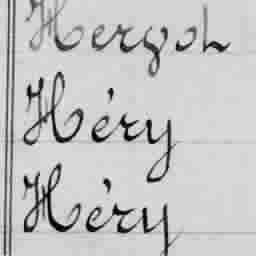 Hergoh
Héry
Héry